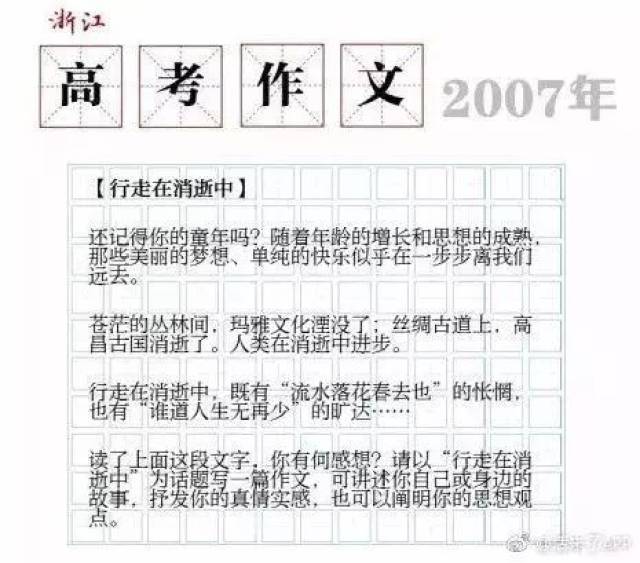 浙江
高考作文 2007年
【行走在消逝中】
还记得你的童年吗？随着年龄的增长和思想的成熟，
那些美丽的梦想、单纯的快乐似乎在一步步离我们
远去。
苍茫的丛林间，玛雅文化湮没了；丝绸古道上，高
昌古国消逝了。人类在消逝中进步。
行走在消逝中，既有“流水落花春去也”的怅惘，
也有“谁道人生无再少”的旷达……
读了上面这段文字，你有何感想？请以“行走在消
逝中”为话题写一篇作文，可讲述你自己或身边的
故事，抒发你的真情实感，也可以阐明你的思想观
点。